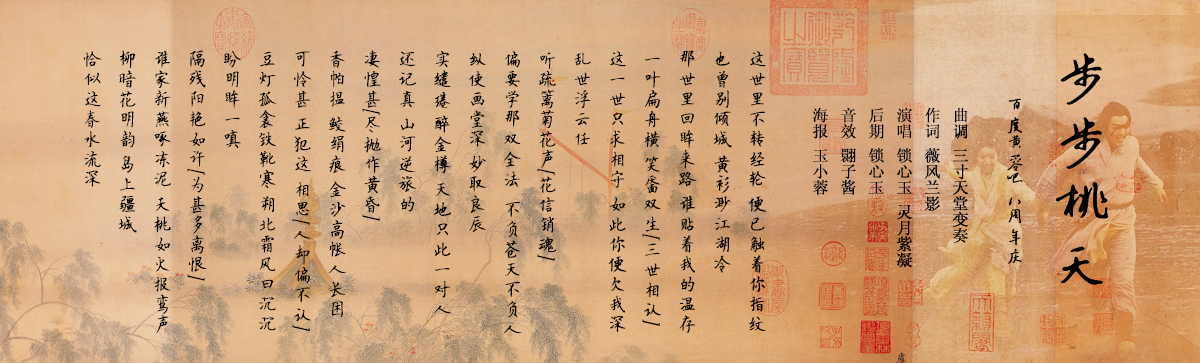 步步桃夭
百度黄蓉吧 八周年庆
曲调 三寸天堂变奏
作词 薇风兰影
演唱 锁心玉 灵月紫凝
后期 锁心玉
音效 翾子酱
海报 玉小蓉
这世里不转经轮 便已触着你指纹
也曾别倾城 黄衫渺江湖冷
那世里回眸来路 谁贴着我的温存
一叶扁舟横 笑靥双生/三世相认/
这一世只求相守 如此你便欠我深
乱世浮云任
听疏篱菊花声/花信销魂/
偏要学那双全法 不负苍天不负人
纵使画堂深 妙取良辰
实缱绻 醉金樽 天地只此一对人
还记真 山河逆旅的
凄惶甚/尽抛作黄昏/
香帕揾 鲛绡痕 金沙高帐人长困
可怜甚 正犯这 相思/人却偏不认/
豆灯孤衾铁靴寒 朔北霜风日沉沉
盼明眸一嗔
隔残阳艳如许/为甚多离恨/
谁家新燕啄冻泥 夭桃如火报鸾声
柳暗花明韵 岛上疆城
恰似这春水流深